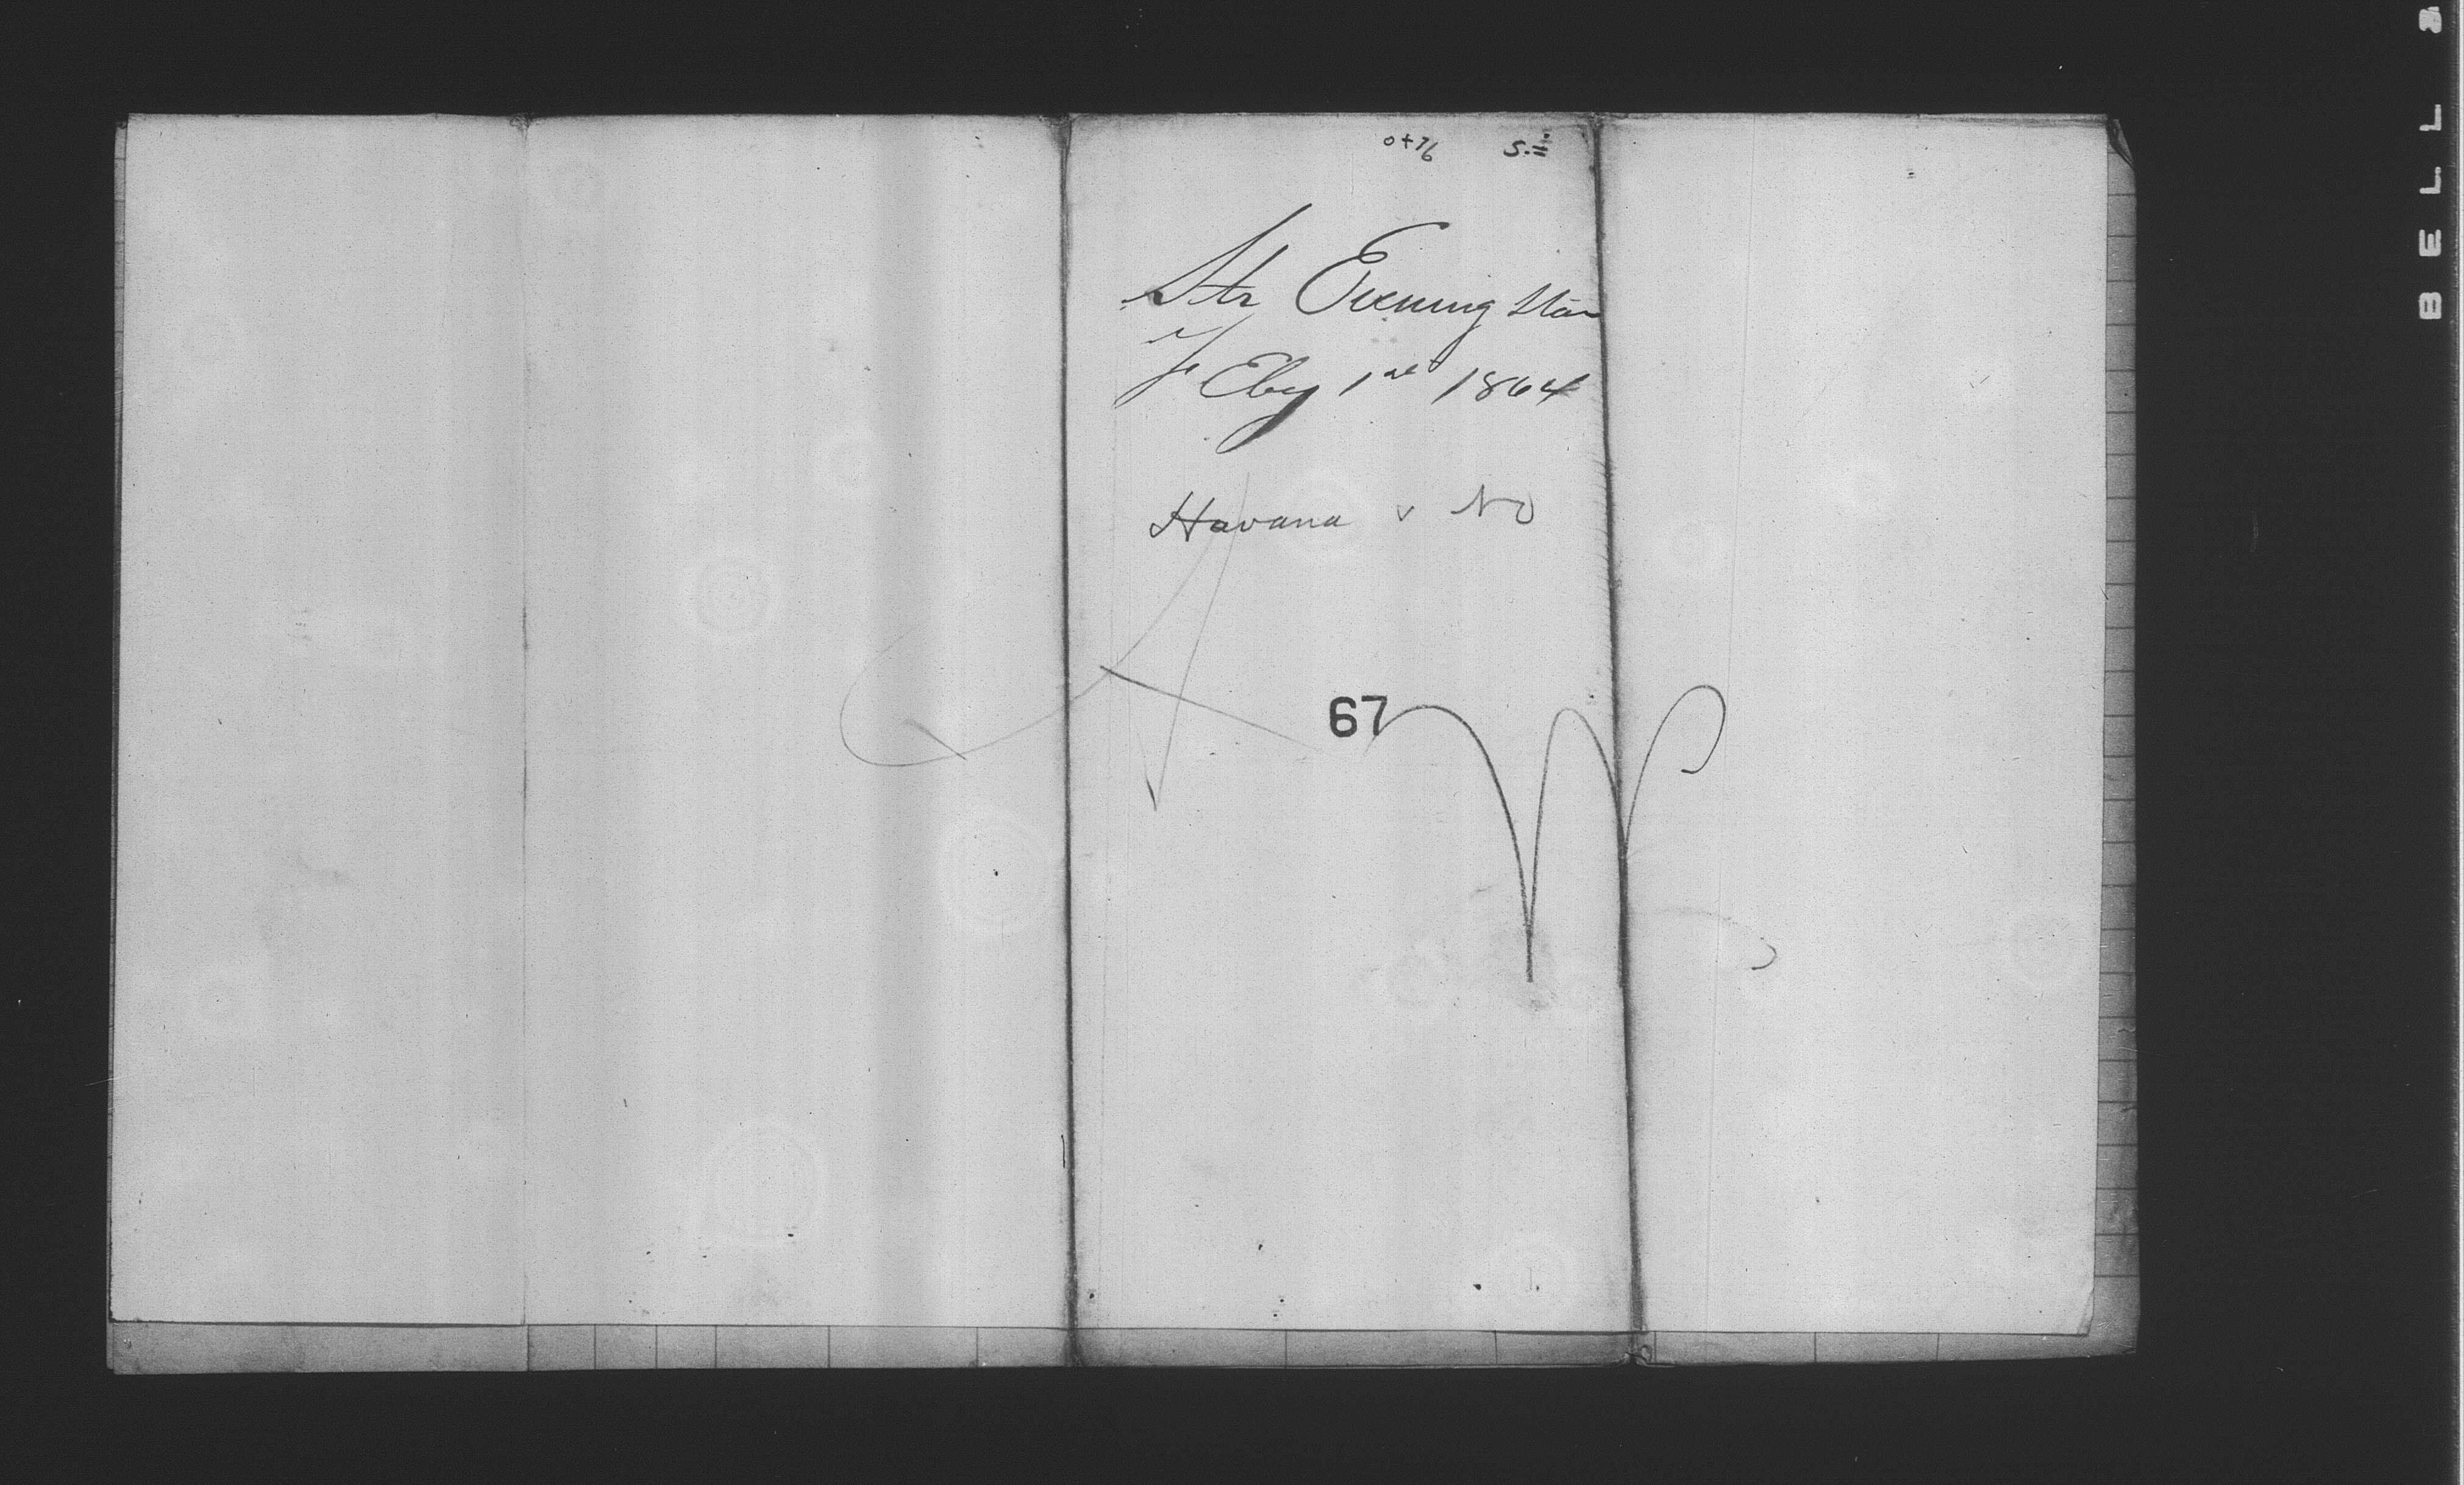 0+76 5.=
Str Evening Star
Feby 1st 1864
Havana & NO
67
BELL &